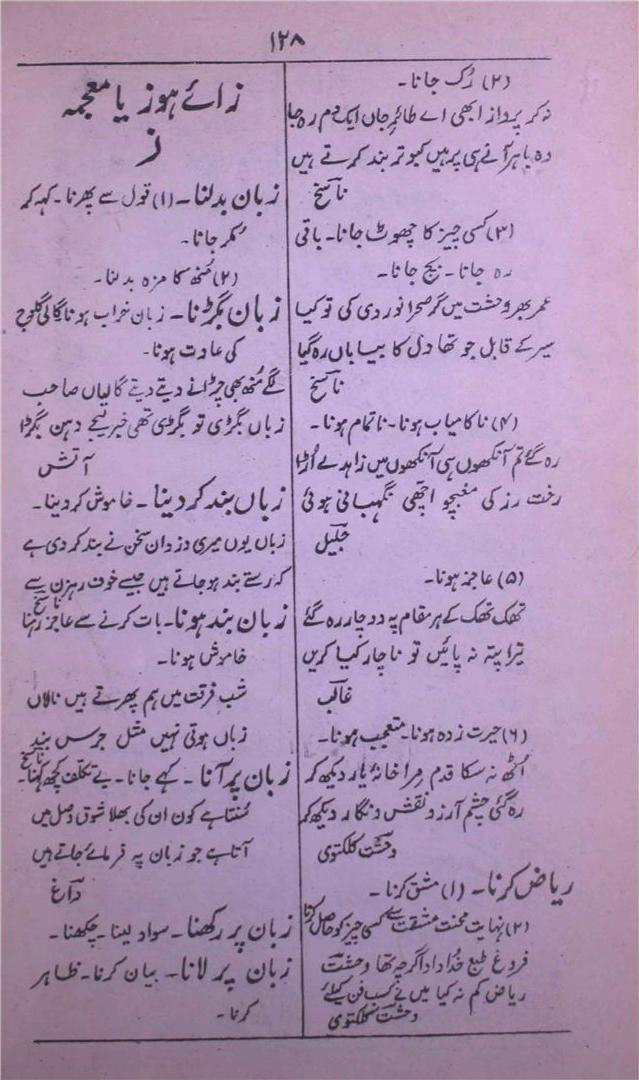 ۱۲۸
(۲) رُک جانا۔
نہ کر پرواز ابھی اے طائرِ جاں ایک دم رہ جا
وہ باہر آنے ہی پر ہیں کبوتر بند کرتے ہیں
ناسخ
(۳) کسی چیز کا چھوٹ جانا۔ باقی
رہ جانا۔ بچ جانا۔
عمر بھر وحشت میں گر صحرا نوردی کی تو کیا
سیر کے قابل جو تھا دل کا بیاباں رہ گیا
ناسخ
(۴) ناکامیاب ہونا۔ ناتمام ہونا۔
رہ گئے تم آنکھوں ہی آنکھوں میں زاہد لے اُڑا
دخت رز کی مغبچو اچھی نگہبانی ہوئی
جلیل
(۵) عاجز ہونا۔
تھک تھک کے ہر مقام پہ دو چار رہ گئے
تیرا پتہ نہ پائیں تو ناچار کیا کریں
غالب
(۶) حیرت زدہ ہونا۔ متعجب ہونا۔
اُٹھ نہ سکا قدم مِرا خانۂ یار دیکھ کر
رہ گئی چشمِ آرزو نقش و نگار دیکھ کر
وحشت کلکتوی
ریاض کرنا۔ (۱) مشق کرنا۔
(۲) نہایت محنت مشقت سے کسی چیز کو حاصل کرنا
فروغِ طبع خُداداد اگرچہ تھا وحشت
ریاض کم نہ کیا میں نے کسبِ فن کیلئے
وحشت کلکتوی
زائے ہوز یا معجمہ
ز
زبان بدلنا۔ (۱) قول سے پھرنا۔ کہہ کر
مُکر جانا۔
(۲) مُنھ کا مزہ بدلنا۔
زبان بگڑنا۔ زبان خراب ہونا گالی گلوج
کی عادت ہونا۔
لگے مُنھ بھی چڑانے دیتے دیتے گالیاں صاحب
زباں بگڑی تو بگڑی تھی خبر لیجے دہن بگڑا
آتش
زباں بند کر دینا۔ خاموش کر دینا۔
زباں یوں میری دزدانِ سخن نے بند کر دی ہے
کہ رستے بند ہو جاتے ہیں جیسے خوف رہزن سے
ناسخ
زبان بند ہونا۔ بات کرنے سے عاجز رہنا
خاموش ہونا۔
شبِ فرقت میں ہم پھرتے ہیں نالاں
زباں ہوتی نہیں مثل جرس بند
ناسخ
زبان پر آنا۔ کہے جانا۔ بے تکلف کچھ کہنا۔
سُنتا ہے کون ان کی بھلا شوق وصل میں
آتا ہے جو زبان پہ فرمائے جاتے ہیں
داغ
زبان پر رکھنا۔ سواد لینا۔ چکھنا۔
زبان پر لانا۔ بیان کرنا۔ ظاہر
کرنا۔